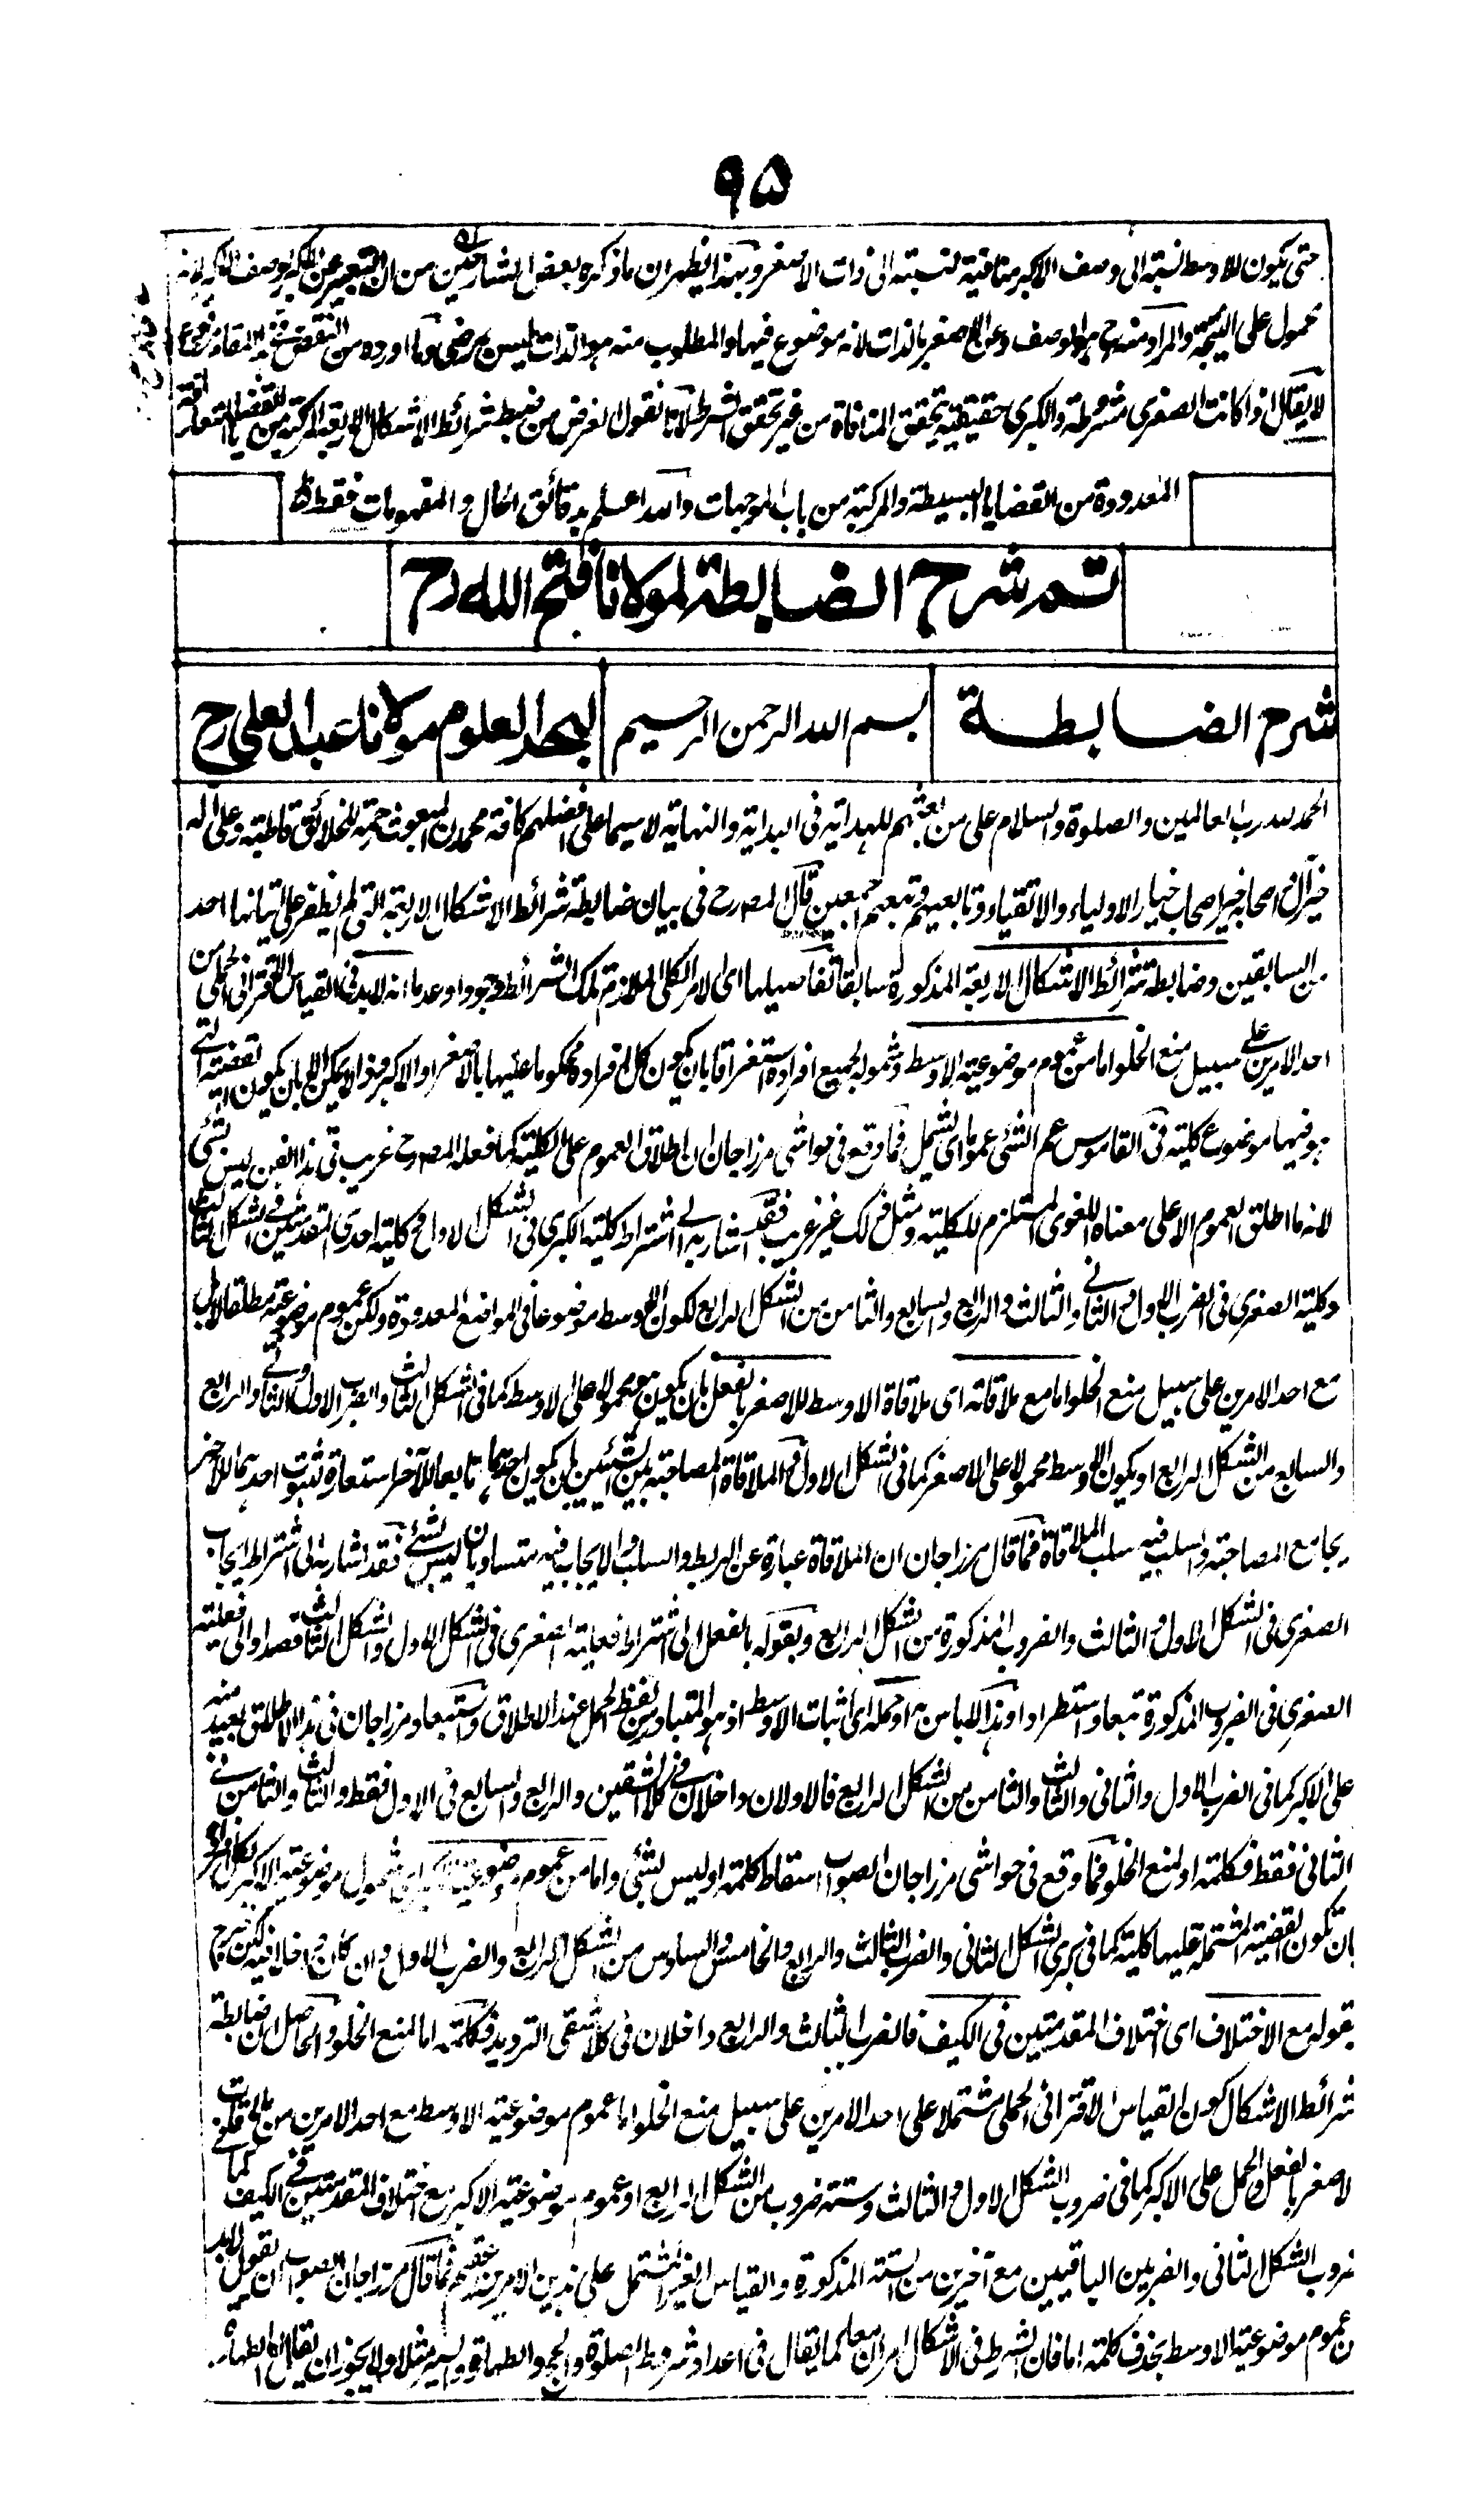 ٩٥
حتى يكون للاوسط نسبة الى وصف الاكبر منافية لنسبته الى ذات الاصغر وبهذا يظهر ان ما ذكره بعض الشارحين من ان التعبير عن الاكبر بوصف الاكبر لانه
محمول على النتيجة والمراد منه ح هو الوصف وعن الاصغر بالذات لانه موضوع فيها والمطلوب منه هو الذات ليس بمرضي وما اورده من النقض
لا يقال اذا كانت الصغرى مشروطة والكبرى حقيقية يتحقق المنافاة من غير تحقق الشرط لانا نقول الغرض من ضبط شرائط الاشكال الاربعة المركبة من القضايا المتعارفة
المعدودة من القضايا البسيطة والمركبة من باب الموجهات والله اعلم بدقائق الحال والمفهومات فقط
تم شرح الضابطة لمولانا فتح الله رح
شرح الضابطة
بسم الله الرحمن الرحيم
لبحر العلوم مولانا عبد العلي رح
الحمد لله رب العالمين والصلوة والسلام على من بعثهم للهداية في البداية والنهاية لا سيما على افضلهم كافة محمد ن المبعوث رحمة للخلائق قاطبة وعلى اله
خير ال واصحابه خير اصحاب خيار الاولياء والاتقياء وتابعيهم وتبعهم اجمعين قال المصرح في بيان ضابطة شرائط الاشكال الاربعة التي لم يظفر على اتيانها احد
من السابقين وضابطة شرائط الاشكال الاربعة المذكورة سابقا تفاصيلها اى الامر الكلي الملازم لتلك الشرائط وجودا وعدما انه لا بد في القياس الاقتراني الحملي من
احد الامرين على سبيل منع الخلو اما من عموم موضوعية الاوسط وشموله لجميع افراده استغراقا بان يكون كل افراده محكوما عليها بالاصغر او الاكبر وذا لا يمكن الا بان يكون القضية التي
هو فيها موضوع كلية في القاموس عم الشئ عموما اى شمل فما وقع في حواشى مرزاجان ان اطلاق العموم على الكلية كما فعله المصرح غريب في هذا الفن ليس بشئ
لانه ما اطلق العموم الا على معناه اللغوى المستلزم للكلية ومثل ذلك غير غريب فقد اشار به الى اشتراط كلية الكبرى في الشكل الاول وكلية احدى المقدمتين في الشكل الثالث
وكلية الصغرى في الضرب الاول والثاني والثالث والرابع والسابع والثامن من الشكل الرابع لكون الاوسط موضوعا في المواضع المعدودة ولكن عموم موضوعيته مطلقا لا بل
مع احد الامرين على سبيل منع الخلو اما مع ملاقاته اى ملاقاة الاوسط للاصغر بالفعل بان يكون هو محمولا على الاوسط كما في الشكل الثالث والضرب الاول والثاني والرابع
والسابع من الشكل الرابع او يكون الاوسط محمولا على الاصغر كما في الشكل الاول والملاقاة المصاحبة بين الشيئين بان يكون احدهما تابعا للاخر استعارة لثبوت احدهما للاخر
بجامع المصاحبة والسلب فيه سلب الملاقاة فما قال مرزاجان ان الملاقاة عبارة عن الربط والسلب والايجاب فيه متساويان ليس بشئ فقد اشار به الى اشتراط ايجاب
الصغرى في الشكل الاول والثالث والضروب المذكورة من الشكل الرابع وبقوله بالفعل الى اشتراط فعلية الصغرى في الشكل الاول والشكل الثالث قصدا والى فعلية
الصغرى في الضروب المذكورة تبعا واستطرادا وهذا لا باس به او حمله اى اثبات الاوسط اذ هو المتبادر من لفظ الحمل عند الاطلاق واستبعاد مرزاجان في هذا الاطلاق بعيد منه
على الاكبر كما في الضرب الاول والثاني والثالث والثامن من الشكل الرابع فالاولان داخلان في كلا الشقين والرابع والسابع في الاول فقط والثالث والثامن في
الثاني فقط فكلمة او لمنع الخلو فما وقع في حواشى مرزاجان الصواب اسقاط كلمة او ليس بشئ واما من عموم موضوعية الاكبر اى شمول موضوعية الاكبر لكل افراده
بان تكون القضية المشتملة عليها كلية كما في كبرى الشكل الثاني والضرب الثالث والرابع والخامس والسادس من الشكل الرابع والضرب الاول وان كان داخلا فيه لكن خرج
بقوله مع الاختلاف اى اختلاف المقدمتين في الكيف فالضرب الثالث والرابع داخلان في كلا شقى الترديد فكلمة اما لمنع الخلو والحاصل ان ضابطة
شرائط الاشكال كون القياس الاقتراني الحملي مشتملا على احد الامرين على سبيل منع الخلو اما عموم موضوعية الاوسط مع احد الامرين من الملاقات
لاصغر بالفعل والحمل على الاكبر كما في ضروب الشكل الاول والثالث وستة ضروب من الشكل الرابع او عموم موضوعية الاكبر مع اختلاف المقدمتين في الكيف كما في
ضروب الشكل الثاني والضربين الباقيين مع آخرين من الستة المذكورة والقياس الغير المشتمل على هذين الامرين عقيم فما قال مرزاجان الصواب ان يقول لا بد
من عموم موضوعية الاوسط بحذف كلمة اما فان الشرط في الاشكال امران معا كما يقال في اعداد شروط الصلوة والحج والطهارة والنية مثلا ولا يجوز ان يقال اما الطهارة